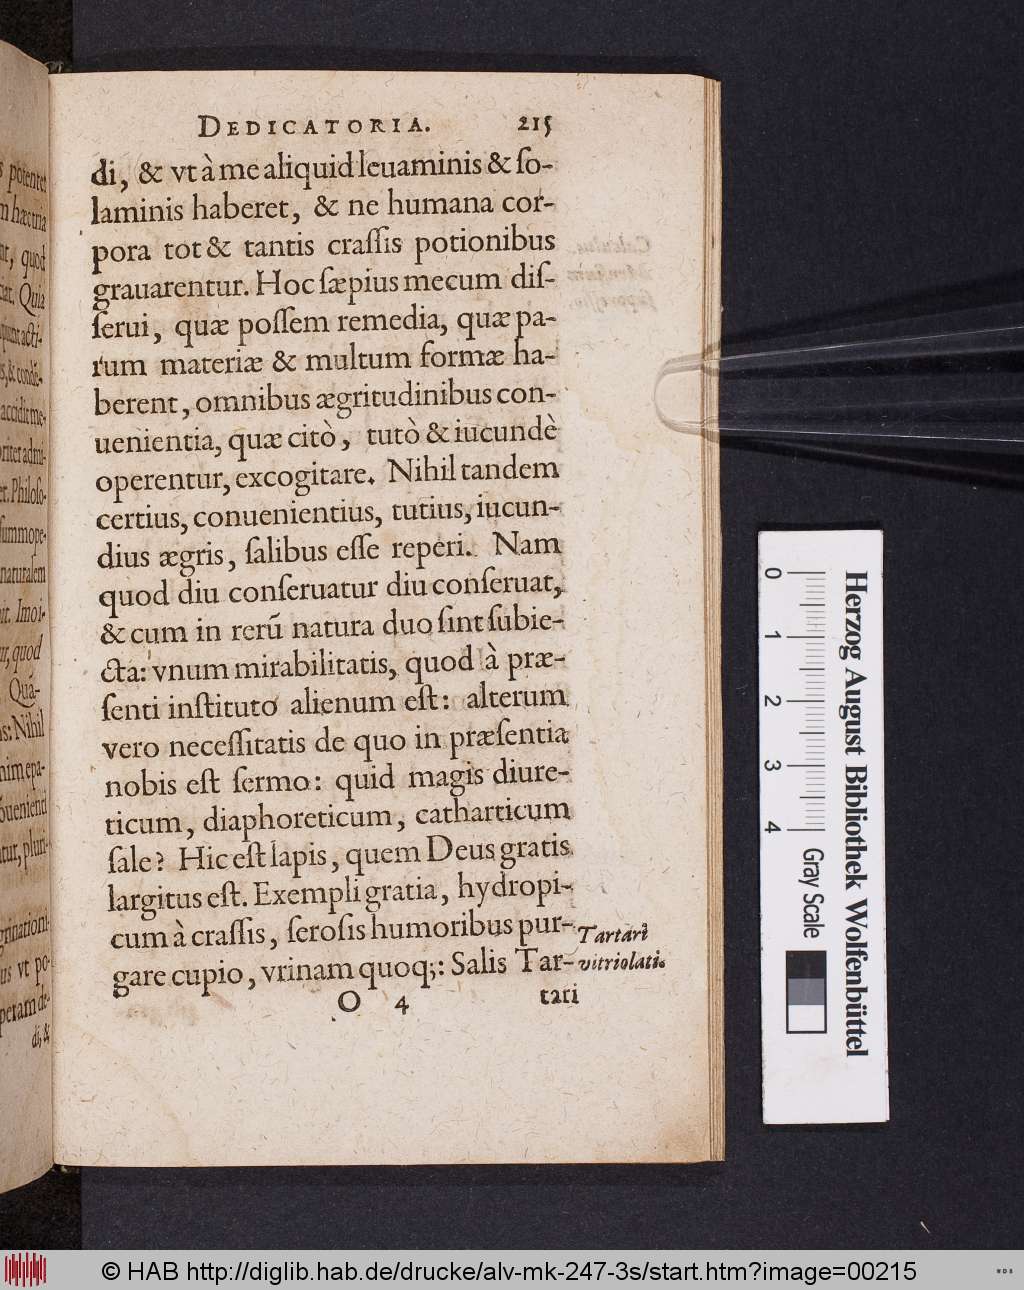 DEDICATORIA. 215
di, & vt à me aliquid leuaminis & ſo-
laminis haberet, & ne humana cor-
pora tot & tantis craſſis potionibus
grauarentur. Hoc ſæpius mecum diſ-
ſerui, quæ poſſem remedia, quæ pa-
rum materiæ & multum formæ ha-
berent, omnibus ægritudinibus con-
uenientia, quæ citò, tutò & iucundè
operentur, excogitare. Nihil tandem
certius, conuenientius, tutius, iucun-
dius ægris, ſalibus eſſe reperi. Nam
quod diu conſeruatur diu conſeruat,
& cum in rerũ natura duo ſint ſubie-
cta: vnum mirabilitatis, quod à præ-
ſenti inſtituto alienum eſt: alterum
vero neceſſitatis de quo in præſentia
nobis eſt ſermo: quid magis diure-
ticum, diaphoreticum, catharticum
ſale? Hic eſt lapis, quem Deus gratis
largitus eſt. Exempli gratia, hydropi-
cum à craſſis, ſeroſis humoribus pur-
gare cupio, vrinam quoq;: Salis Tar-
Tartari
vitriolati.
O 4 tari
potentet
hæc
quod
Quia
acti-
& condi-
accidit me-
admi-
Philoſo-
ſummope-
naturalem
Imoi-
quod
Quã-
Nihil
enim epa-
pluri-
us vt po-
operam de-
di, &
Herzog August Bibliothek Wolfenbüttel
0 1 2 3 4
Gray Scale
© HAB http://diglib.hab.de/drucke/alv-mk-247-3s/start.htm?image=00215